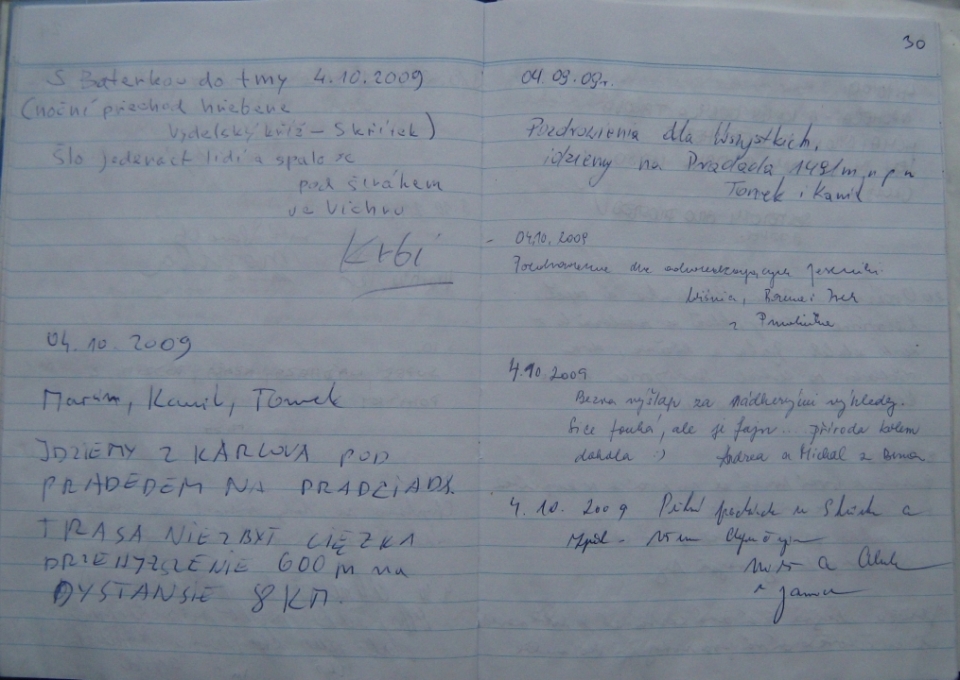 S Baterkou do tmy 4.10.2009
(noční přechod hřebene
Vydelský kříž – Skřítek)
Šlo jedenáct lidí a spalo se
pod širákem
ve Vichru
Krbi
04.10.2009
Marcin, Kamil, Tomek
IDZIEMY Z KARLOVA POD
PRADEDEM NA PRADZIADA.
TRASA NIEZBYT CIĘŻKA
600 m na
DYSTANSIE 8 KM.
30
04.09.09r.
Pozdrowienia dla Wszystkich,
idziemy na Pradziada 1491m n p m
Tomek i Kamil
04.10.2009
Pozdrowienia dla odwiedzających Jeseniki.
Wiśnia, i
z Prudnika
4.10 2009
výšlap za nádhernými výhledy.
Sice fouká, ale je fajn... příroda kolem
dokola :) Andrea a Michal z
4. 10. 2009 Pěkný a
a